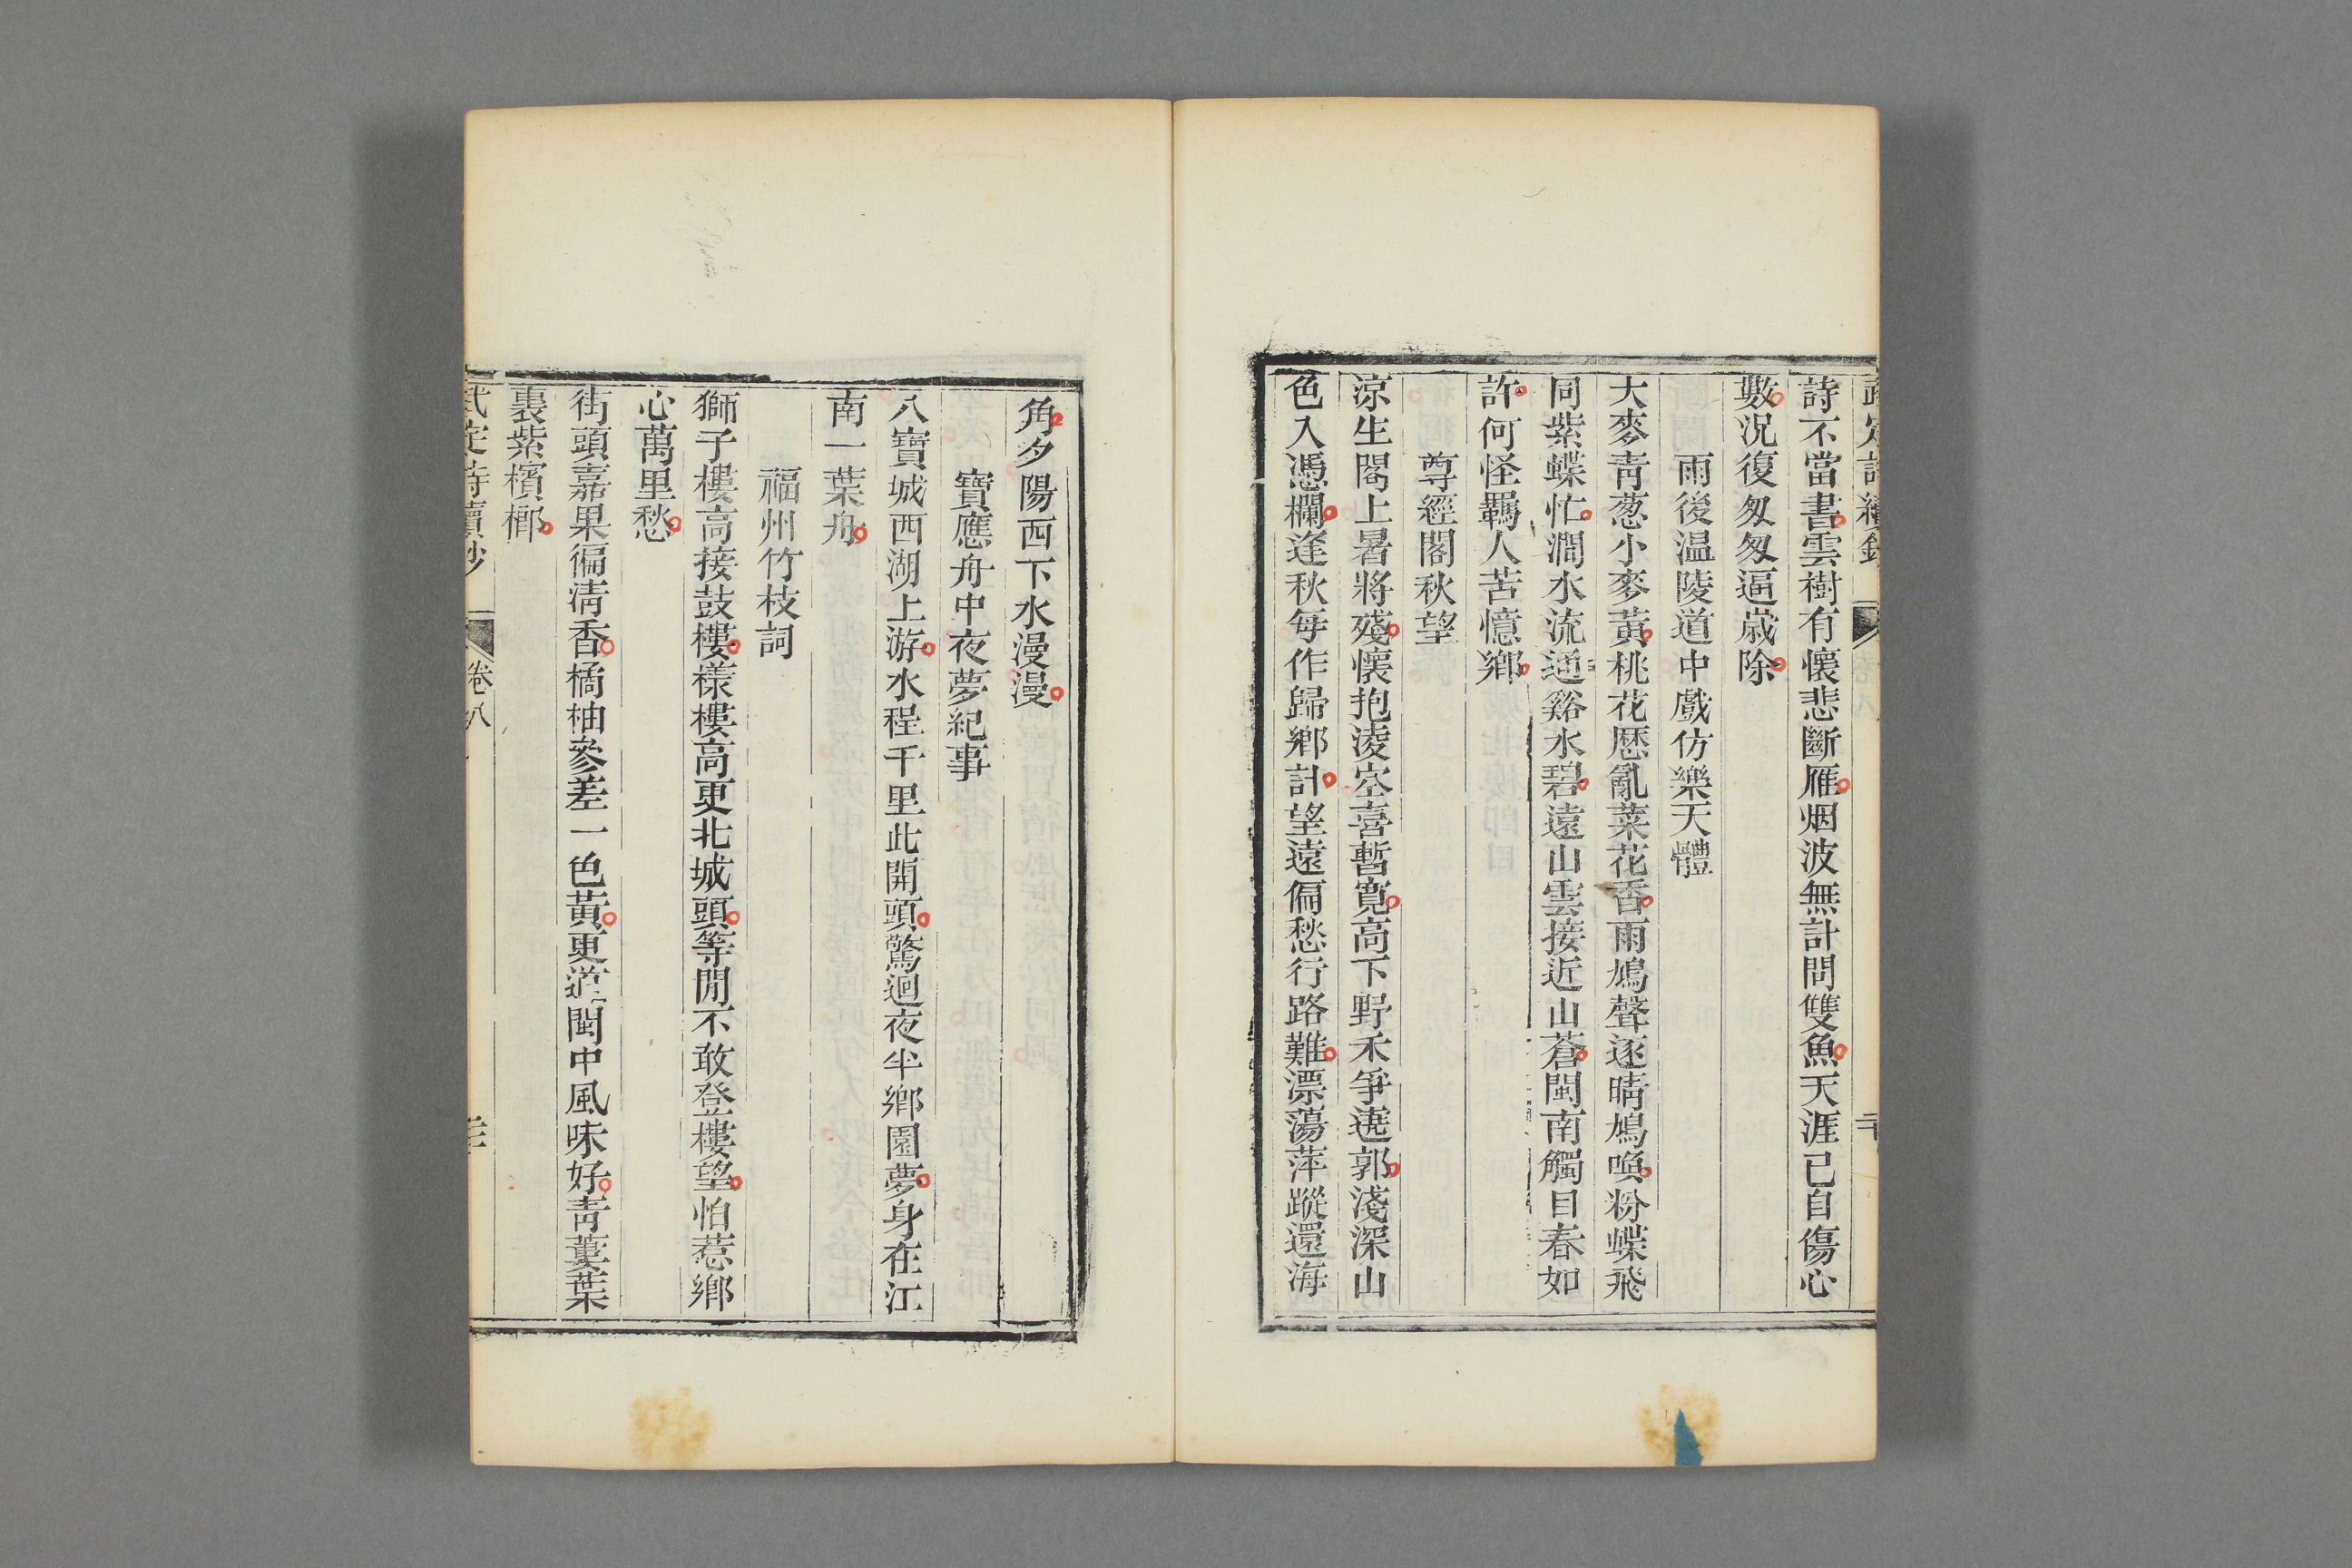 武定詩續鈔
詩不當書雲樹有懷悲斷雁烟波無計問雙魚天涯已自傷心
數況復匆匆逼歲除
雨後温陵道中戲仿樂天體
大麥青葱小麥黃桃花歷亂菜花香雨鳩聲逐晴鳩喚粉蝶飛
同紫蝶忙澗水流通谿水碧遠山雲接近山蒼閩南觸目春如
許何怪羈人苦憶鄉
尊經閣秋望
涼生閣上暑將殘懷抱淩空喜暫寬高下野禾爭遶郭淺深山
色入憑欄逢秋每作歸鄉計望遠偏愁行路難漂蕩萍蹤還海
角夕陽西下水漫漫
寶應舟中夜夢紀事
八寶城西湖上游水程千里此開頭驚迴夜半鄉園夢身在江
南一葉舟
福州竹枝詞
獅子樓高接鼓樓樣樓高更北城頭等閒不敢登樓望怕惹鄉
心萬里愁
街頭嘉果徧清香橘柚參差一色黃更道閩中風味好青蔞葉
裏紫檳榔
武定詩續鈔
卷八